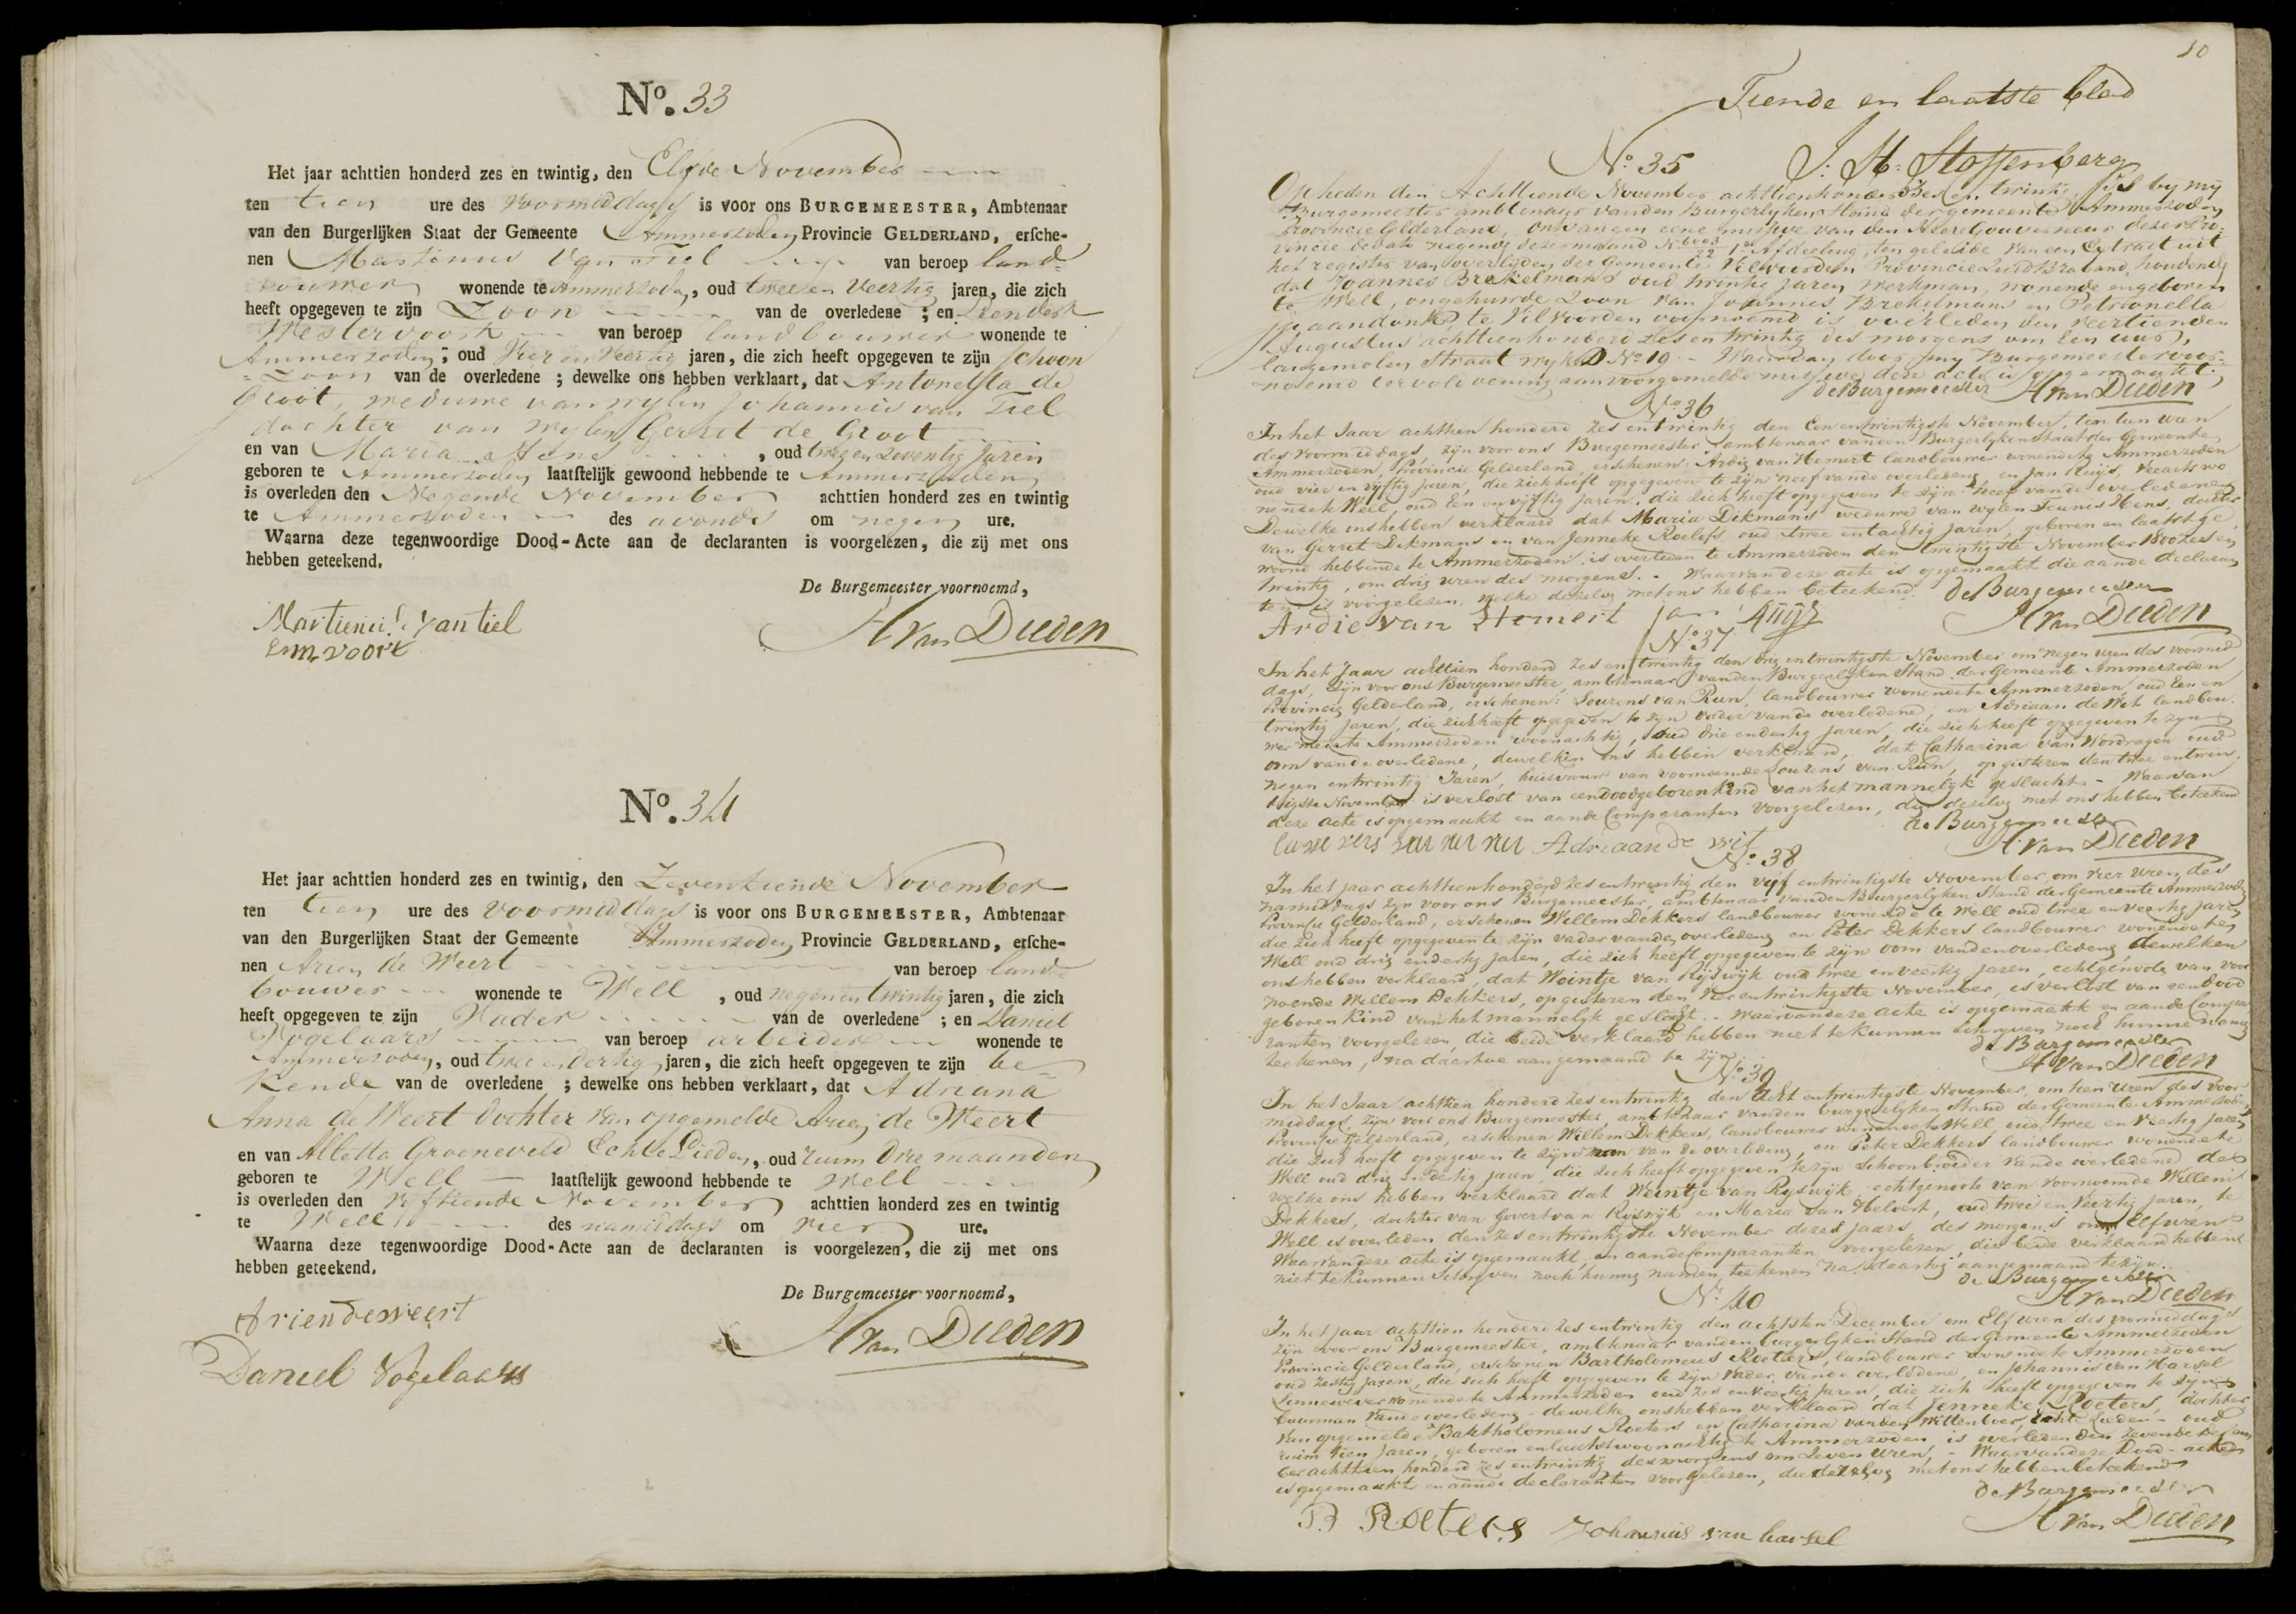 No. 33
Het jaar achttien honderd zes en twintig, den Elfde November
ten tien ure des voormiddags is voor ons BURGEMEESTER, Ambtenaar
van den Burgerlijken Staat der Gemeente Ammerzoden Provincie GELDERLAND, ersche-
nen Martinus van Tiel van beroep land-
bouwer wonende te Ammerzoden, oud twee en Veertig jaren, die zich
heeft opgegeven te zijn Zoon van de overledene ; en Leendert
Westervoort van beroep landbouwer wonende te
Ammerzoden, oud Vier en Veertig jaren, die zich heeft opgegeven te zijn Schoon
-Zoon van de overledene ; dewelke ons hebben verklaart, dat Antonetta de
Groot, weduwe van wylen Johannis van Tiel
dochter van wylen Gerrit de Groot
en van Maria Hens, oud twee en zeventig Jaren
geboren te Ammerzoden laatstelijk gewoond hebbende te Ammerzoden
is overleden den Negende November achttien honderd zes en twintig
te Ammerzoden des avonds om negen ure.
Waarna deze tegenwoordige Dood-Acte aan de declaranten is voorgelezen, die zij met ons
hebben geteekend.
De Burgemeester voornoemd,
Martienis van tiel
voort
H van Dieden
No. 34
Het jaar achttien honderd zes en twintig, den Zeventiende November
ten tien ure des voormiddags is voor ons BURGEMEESTER, Ambtenaar
van den Burgerlijken Staat der Gemeente Ammerzoden Provincie GELDERLAND, ersche-
nen Arien de Weert van beroep land-
bouwer wonende te Well, oud negen en twintig jaren, die zich
heeft opgegeven te zijn Vader van de overledene ; en Daniel
Vogelaars van beroep arbeider wonende te
Ammerzoden, oud twee en dertig jaren, die zich heeft opgegeven te zijn be-
kende van de overledene ; dewelke ons hebben verklaart, dat Adriana
Anna de Weert dochter van opgemelde Arien de Weert
en van Alletta Groeneveld Echte Lieden, oud ruim drie maanden
geboren te Well laatstelijk gewoond hebbende te Well
is overleden den Vyftiende November achttien honderd zes en twintig
te Well des namiddags om vier ure.
Waarna deze tegenwoordige Dood-Acte aan de declaranten is voorgelezen, die zij met ons
hebben geteekend.
De Burgemeester voornoemd,
Arien de weert
H van Dieden
Daniel Vogelaars
10
Tiende en laatste blad
No 35 J: H: Stoffenberg
Op heden den Achttiende November achttienhonderd zes en twintig, is by my
Burgemeester ambtenaar van den Burgerlyken Stand der gemeente Ammerzoden
Provincie Gelderland, ontvangen eene missive van den Heere Gouverneur dezer Pro-
vincie de dato negende dezer maand Afdeeling, ten geleide van een Extract uit
het register van overlyden der Gemeente Vilvoorden Provincie Zuid Braband, houdende
dat Joannes Brekelmans oud twintig Jaren werkman, wonende en geboren
te Well, ongehuwde Zoon van Johannes Brekelmans en Petronella
te Vilvoorden voornoemd is overleden den veertienden
Augustus achttienhonderd zes en twintig des morgens om een uur,
Langemolen Straat wyk D No 19 - Waarvan door my Burgemeester voor-
noemd ter voldoening aan voorgemelde missive deze acte is opgemaakt.
de Burgemeester H van Dieden
No 36
In het Jaar achttien honderd zes en twintig den Een en twintigste November, ten tien uren
des voormiddags, zyn voor ons Burgemeester ambtenaar van den Burgerlyken staat der Gemeente
Ammerzoden, Provincie Gelderland, erschenen: Ardie van Hemert landbouwer wonende te Ammerzoden
oud vier en vyftig jaren, die zich heeft opgegeven te zyn neef van de overledene, en Jan Kuijs, wo
nende te Well, oud Een en vyftig Jaren, die zich heeft opgegeven te zyn neef van de overledene
Dewelke ons hebben verklaard dat Maria Dikmans weduwe van wylen Teunis Hens, dochter
van Gerrit Dikmans en van Jenneke Roelofs oud twee en tachtig Jaren, geboren en laatst ge
woond hebbende te Ammerzoden is overleden te Ammerzoden den twintigste November 1800 zes en
twintig, om drie uren des morgens. - Waarvan deze acte is opgemaakt die aan de declaran
ten is voorgelezen, welke dezelve met ons hebben geteekend. de Burgemeester
Ardie van Hemert Jan Kuijs H van Dieden
No 37
In het Jaar achttien honderd zes en twintig den drie en twintigste November om negen uren des voormid
dags, zyn voor ons Burgemeester ambtenaar van den Burgerlyken Stand der Gemeente Ammerzoden
Provincie Gelderland, erschenen: Lourens van Run, landbouwer wonende te Ammerzoden oud Een en
twintig jaren, die zich heeft opgegeven te zyn vader van de overledene, en Adriaan de Wit landbou
wer mede te Ammerzoden woonachtig, oud drie en dertig jaren, die zich heeft opgegeven te zyn
oom van de overledene, dewelken ons hebben verklaard, dat Catharina van Wordragen oud
negen en twintig Jaren, huisvrouw van voornoemde Lourens van Run, op gisteren den twee en twin
tigste November is verlost van een doodgeboren kind van het mannelyk geslacht. - Waarvan
deze acte is opgemaakt en aan de Comparanten voorgelezen, die dezelve met ons hebben geteekend
de Burgemeester
Adriaan de wit H van Dieden
No 38
In het jaar achttienhonderd zes en twintig den vyf en twintigste November, om vier uren des
namiddags zyn voor ons Burgemeester, ambtenaar van den Burgerlyken Stand der Gemeente Ammerzoden
Provincie Gelderland, erschenen Willem Dekkers landbouwer wonende te Well oud twee en veertig Jaren
die zich heeft opgegeven te zyn vader van de overledene en Peter Dekkers landbouwer wonende te
Well oud drie en dertig jaren, die zich heeft opgegeven te zyn oom van den overledene, dewelken
ons hebben verklaard, dat Weintje van Rijswijk oud twee en veertig Jaren, echtgenoote van voor
noemde Willem Dekkers, op gisteren den Vier en twintigste November, is verlost van een dood
geboren kind van het mannelyk geslagt. - Waarvan deze acte is opgemaakt en aan de Compa
ranten voorgelezen, die beide verklaard hebben niet te kunnen schryven noch hunne namen
teekenen, na daartoe aangemaand te zyn. de Burgemeester
H van Dieden
No 39
In het Jaar achttien honderd zes en twintig den Acht en twintigste November, om tien uren des voor
middags, zyn voor ons Burgemeester, ambtenaar van den burgerlyken Stand der Gemeente Ammerzoden
Provincie Gelderland, erschenen Willem Dekkers, landbouwer wonende te Well, oud twee en Veertig Jaren
die zich heeft opgegeven te zyn man van de overledene, en Peter Dekkers landbouwer wonende te
Well oud drie en dertig jaren, die zich heeft opgegeven te zyn Schoonbroeder van de overledene de
welke ons hebben verklaard dat Weintje van Ryswijk echtgenoote van voornoemde Willem
Dekkers, dochter van Govert van Rijswijk en Maria van Helvert, oud twee en Veertig Jaren, te
Well is overleden den zes en twintigste November dezes jaars des morgens om Elf uren
Waarvan deze acte is opgemaakt en aan de Comparanten voorgelezen, die beide verklaard hebben
niet te kunnen schryven noch hunne namen teekenen na daartoe aangemaand te zyn.
de Burgemeester
H van Dieden
No 40
In het jaar achttien honderd zes en twintig den achtsten December om Elf uren des voormiddags
zyn voor ons Burgemeester, ambtenaar van den burgerlyken Stand der Gemeente Ammerzoden
Provincie Gelderland, erschenen Bartholomeus Roeters, landbouwer wonende te Ammerzoden
oud zestig jaren, die zich heeft opgegeven te zyn Vader van de overledene, en Johannis van Harsel
Linnewever wonende te Ammerzoden oud zes en veertig Jaren, die zich heeft opgegeven te zyn
buurman van de overledene - dewelke ons hebben verklaard dat Jenneke Roeters, dochter
van opgemelde Bartholomeus Roeters en Catharina van den Wittenboer, echte Lieden - oud
ruim tien Jaren, geboren en laatst woonachtig te Ammerzoden, is overleden den zevende Decem
ber achttien honderd zes en twintig des morgens om zeven uren, - Waarvan deze Dood-acte
is opgemaakt en aan de declaranten voorgelezen, die dezelve met ons hebben geteekend
de Burgemeester
B Roeters Johannis van harsel H van Dieden